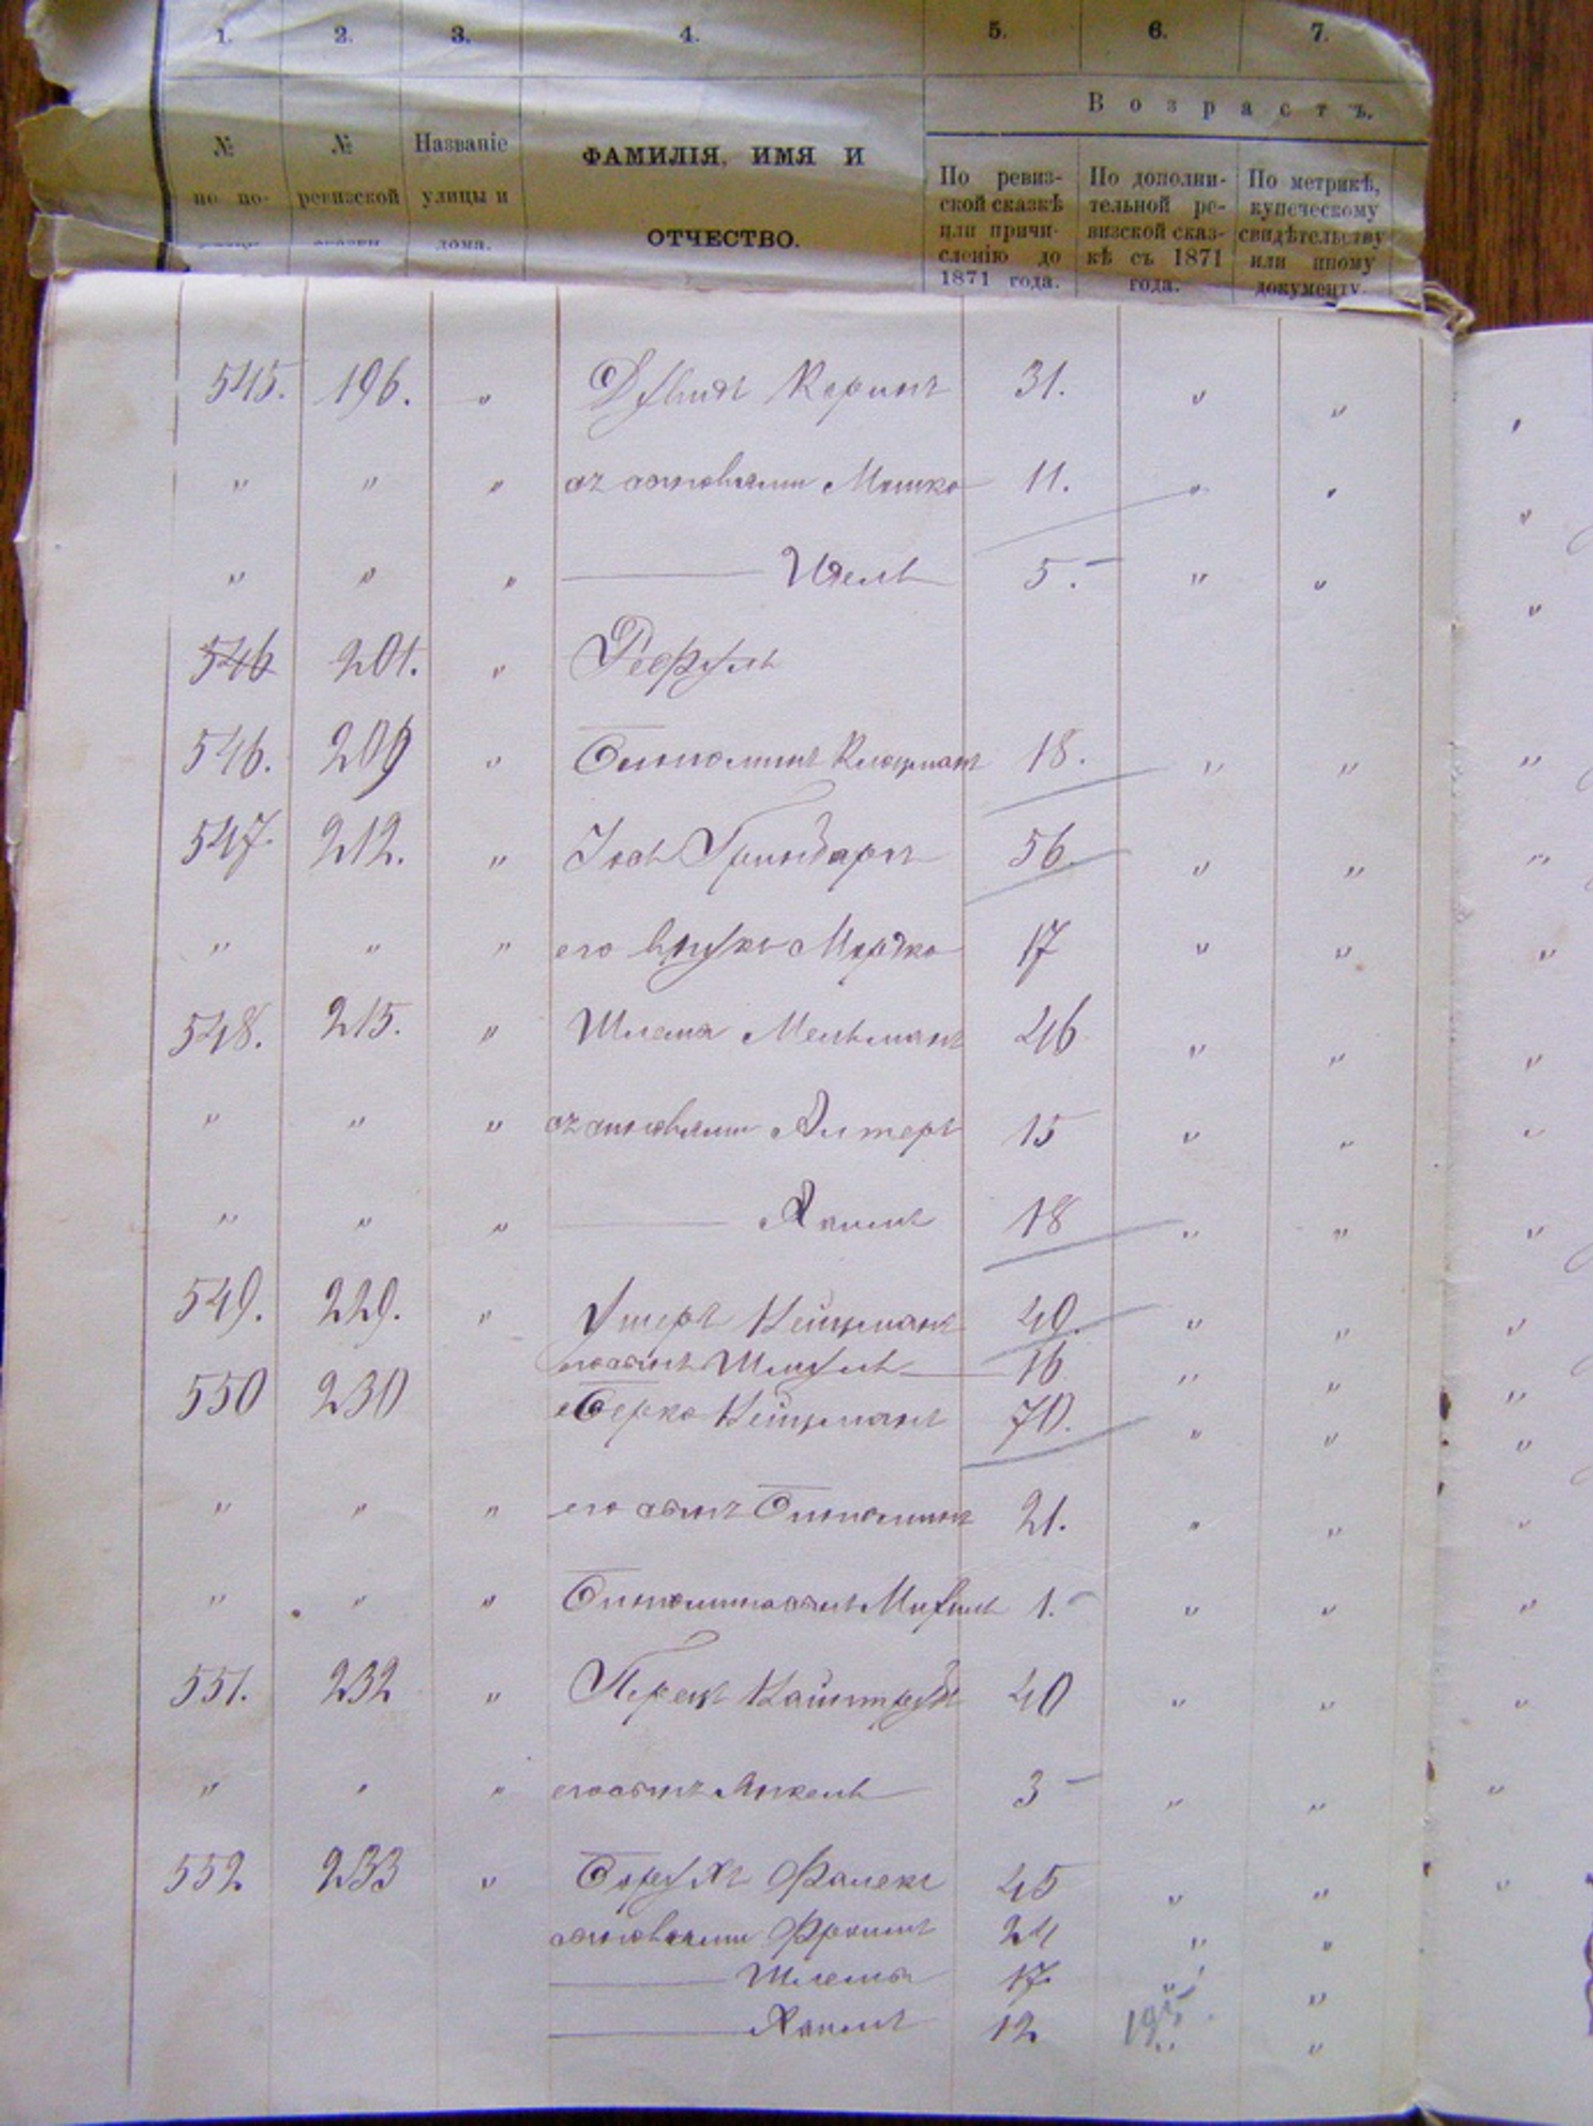 1. 2. 3. 4. 5. 6. 7.
Возрастъ.
№ по по- № ревизской Названіе улицы и дома. ФАМИЛІЯ, ИМЯ И ОТЧЕСТВО. По ревиз-ской сказкѣ или причи-сленію до 1871 года. По дополни-тельной ре-визской сказ-кѣ съ 1871 года. По метрикѣ, купеческому свидѣтельству или иному документу.
545. 196. " Дувидъ 31. " "
" " " съ сыновьями Мошко 11. " "
" " " — Ицель 5. " "
546 201. "
546. 209 " Биньоминъ Клейманъ 18. " "
547. 212. " Іось Гринбаргъ 56. " "
" " " его внукъ Мордко 17 " "
548. 215. " Шлема Мельманъ 46 " "
" " " съ сыновьями Алтеръ 15 " "
" " " — Хаимъ 18 " "
549. 229. " Ушеръ Кейцманъ 40. " "
его сынъ Шмуль 16 " "
550 230 Берко Кейцманъ 70. " "
" " " его сынъ Биньоминъ 21. " "
" " " Биньомина сынъ 1. " "
551. 232 " Перецъ 40 " "
" " " его сынъ Янкель 3 " "
552 233 " Борухъ Фалекъ 45 " "
сыновьями Фроимъ 24 " "
— Шлема 17 " "
— Хаимъ 12 195. "